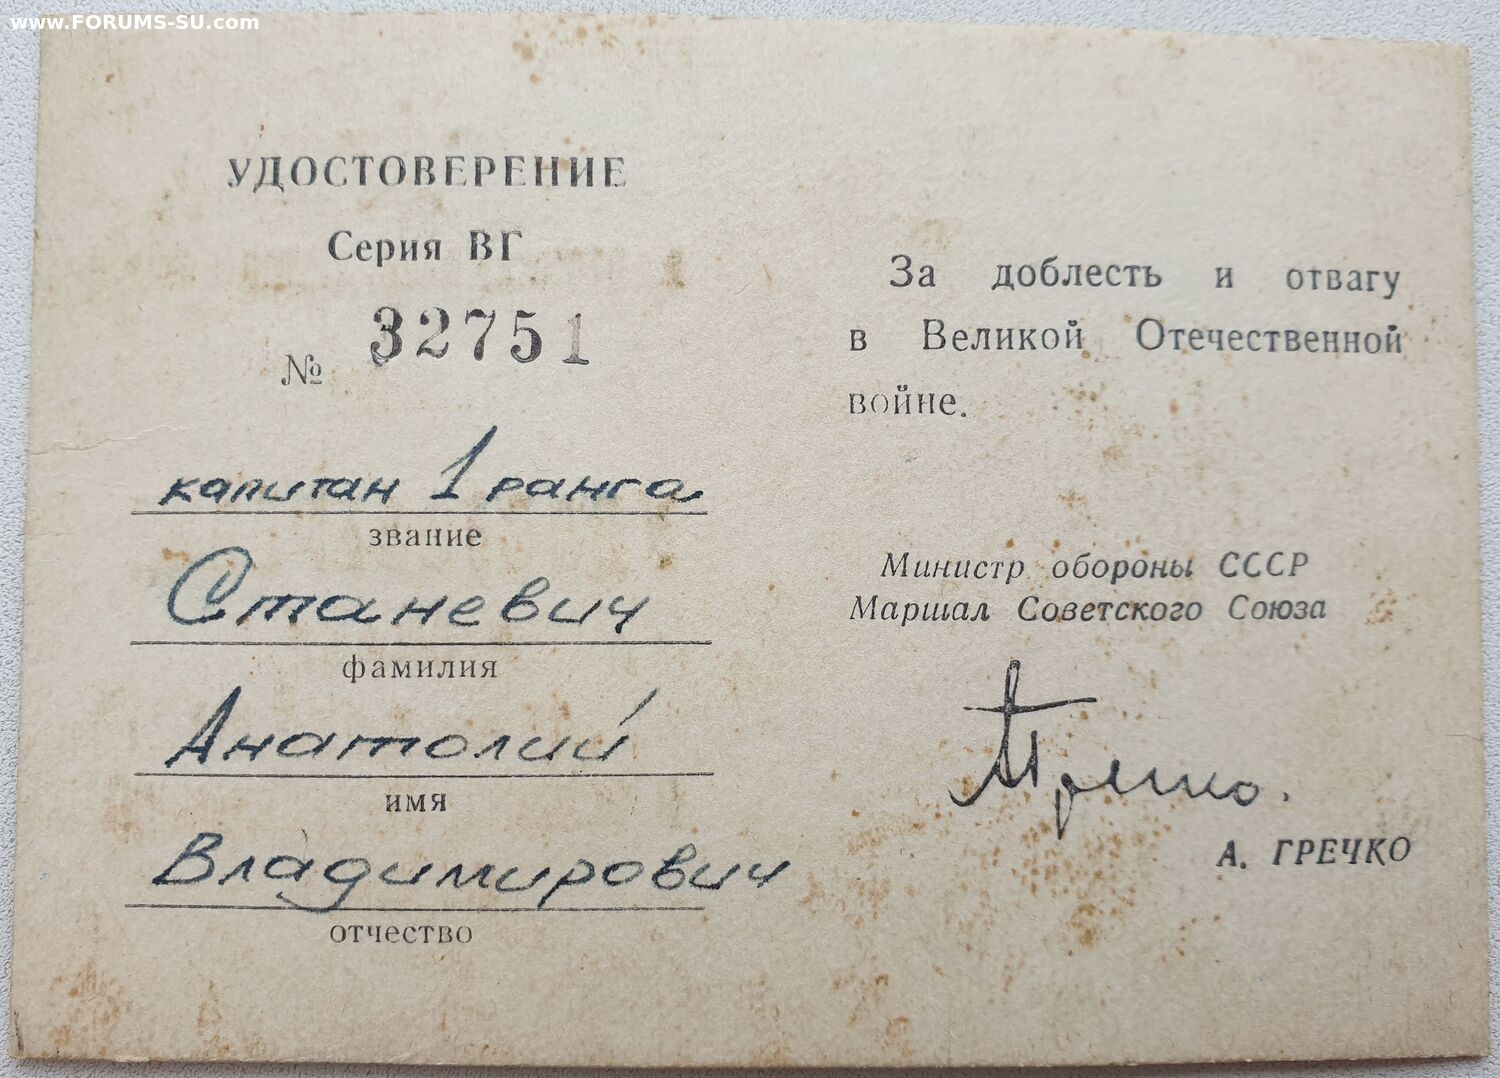 www.FORUMS-SU.com
УДОСТОВЕРЕНИЕ
Серия ВГ
№ 32751
капитан 1 ранга
звание
Станевич
фамилия
Анатолий
имя
Владимирович
отчество
За доблесть и отвагу
в Великой Отечественной
войне.
Министр обороны СССР
Маршал Советского Союза
Гречко.
А. ГРЕЧКО